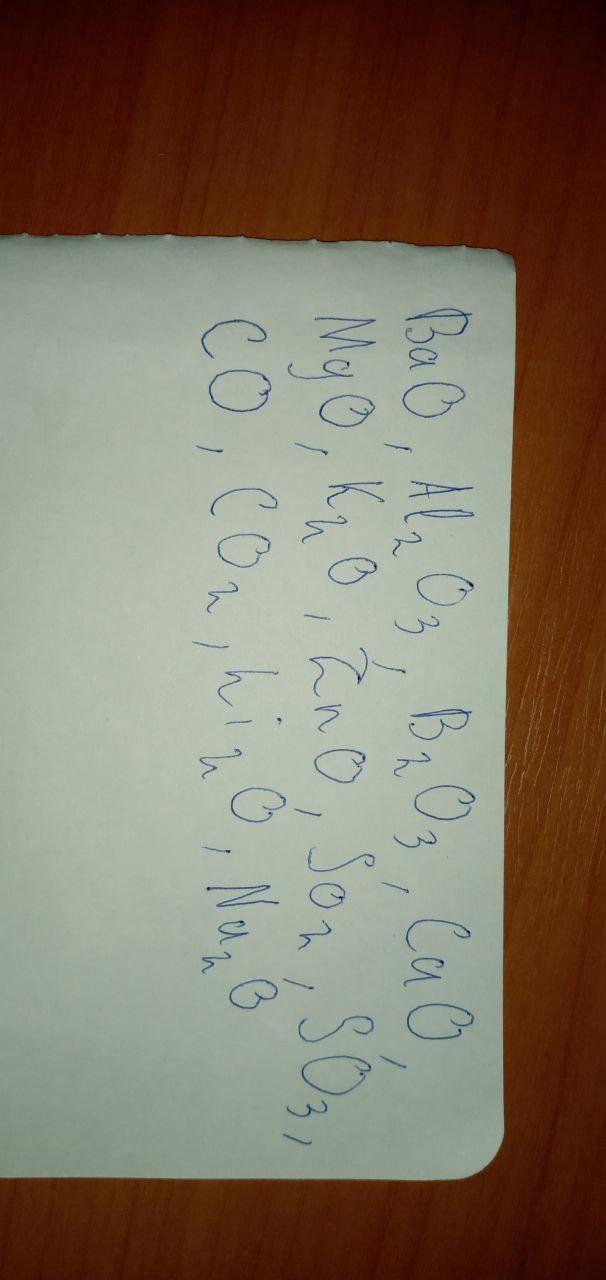 BaO, Al₂O₃, B₂O₃, CaO,
MgO, K₂O, ZnO, SO₂, SO₃,
CO, CO₂, Li₂O, Na₂O